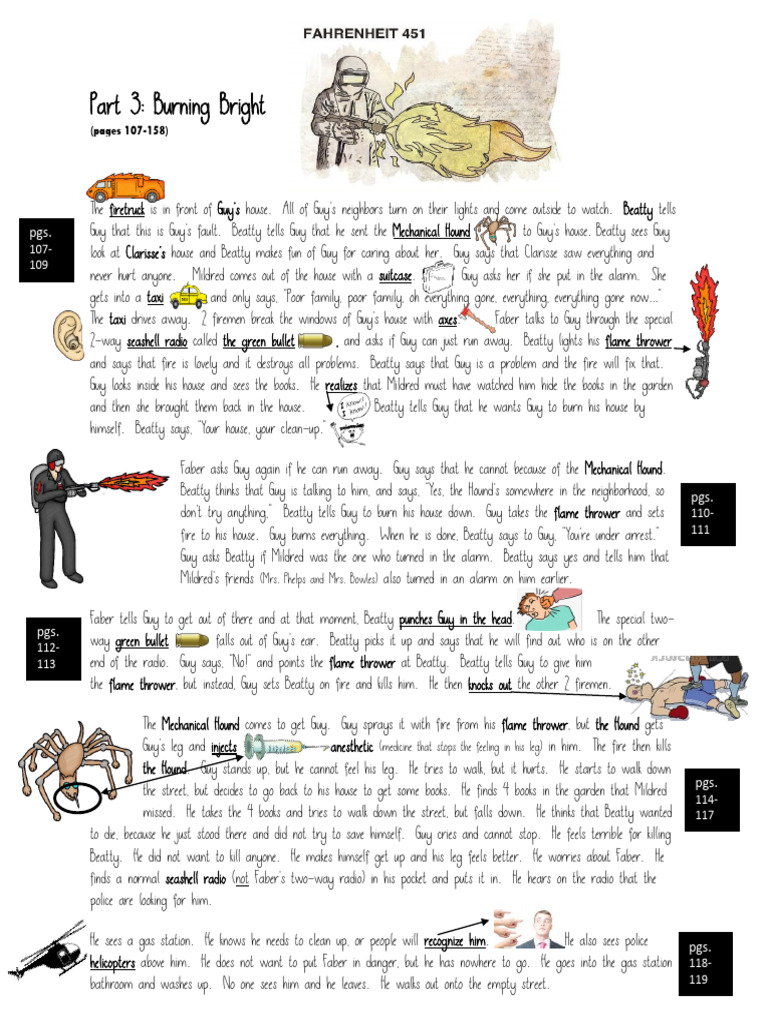 FAHRENHEIT 451
Part 3: Burning Bright
(pages 107-158)
The firetruck is in front of Guy's house. All of Guy's neighbors turn on their lights and come outside to watch. Beatty tells
pgs.
107-
109
Guy that this is Guy's fault. Beatty tells Guy that he sent the Mechanical Hound to Guy's house. Beatty sees Guy
look at Clarisse's house and Beatty makes fun of Guy for caring about her. Guy says that Clarisse saw everything and
never hurt anyone. Mildred comes out of the house with a suitcase. Guy asks her if she put in the alarm. She
gets into a taxi and only says, "Poor family, poor family, oh everything gone, everything, everything gone now...."
The taxi drives away. 2 firemen break the windows of Guy's house with axes. Faber talks to Guy through the special
2-way seashell radio called the green bullet, and asks if Guy can just run away. Beatty lights his flame thrower
and says that fire is lovely and it destroys all problems. Beatty says that Guy is a problem and the fire will fix that.
Guy looks inside his house and sees the books. He realizes that Mildred must have watched him hide the books in the garden
and then she brought them back in the house. Beatty tells Guy that he wants Guy to burn his house by
I know!
I know!
himself. Beatty says, "Your house, your clean-up."
Faber asks Guy again if he can run away. Guy says that he cannot because of the Mechanical Hound.
Beatty thinks that Guy is talking to him, and says, "Yes, the Hound's somewhere in the neighborhood, so
don't try anything." Beatty tells Guy to burn his house down. Guy takes the flame thrower and sets
pgs.
110-
111
fire to his house. Guy burns everything. When he is done, Beatty says to Guy, "You're under arrest."
Guy asks Beatty if Mildred was the one who turned in the alarm. Beatty says yes and tells him that
Mildred's friends (Mrs. Phelps and Mrs. Bowles) also turned in an alarm on him earlier.
Faber tells Guy to get out of there and at that moment, Beatty punches Guy in the head. The special two-
pgs.
112-
113
way green bullet falls out of Guy's ear. Beatty picks it up and says that he will find out who is on the other
end of the radio. Guy says, "No!" and points the flame thrower at Beatty. Beatty tells Guy to give him
the flame thrower, but instead, Guy sets Beatty on fire and kills him. He then knocks out the other 2 firemen.
The Mechanical Hound comes to get Guy. Guy sprays it with fire from his flame thrower, but the Hound gets
Guy's leg and injects anesthetic (medicine that stops the feeling in his leg) in him. The fire then kills
the Hound. Guy stands up, but he cannot feel his leg. He tries to walk, but it hurts. He starts to walk down
the street, but decides to go back to his house to get some books. He finds 4 books in the garden that Mildred
pgs.
114-
117
missed. He takes the 4 books and tries to walk down the street, but falls down. He thinks that Beatty wanted
to die, because he just stood there and did not try to save himself. Guy cries and cannot stop. He feels terrible for killing
Beatty. He did not want to kill anyone. He makes himself get up and his leg feels better. He worries about Faber. He
finds a normal seashell radio (not Faber's two-way radio) in his pocket and puts it in. He hears on the radio that the
police are looking for him.
He sees a gas station. He knows he needs to clean up, or people will recognize him. He also sees police
helicopters above him. He does not want to put Faber in danger, but he has nowhere to go. He goes into the gas station
bathroom and washes up. No one sees him and he leaves. He walks out onto the empty street.
pgs.
118-
119